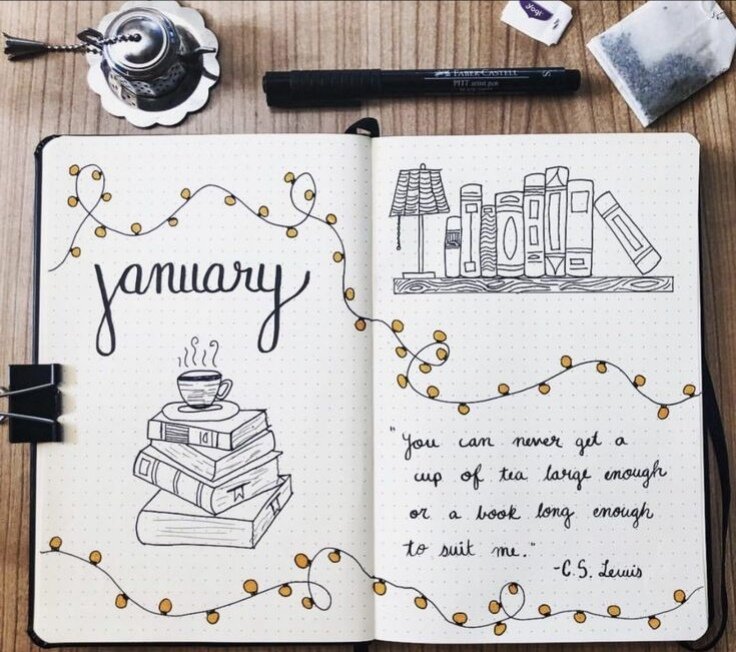 Yogi
FABER-CASTELL S
PITT artist pen
january
"You can never get a
cup of tea large enough
or a book long enough
to suit me."
-C.S. Lewis